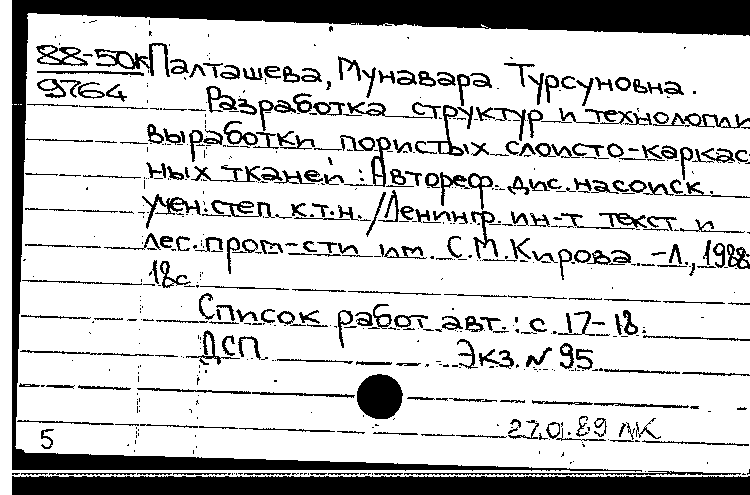 88-50к Палташева, Мунавара Турсуновна.
9764
Разработка структур и технологии
выработки пористых слоисто-каркас-
ных тканей: Автореф. дис. на соиск.
учен. степ. к.т.н. /Ленингр. ин-т текст. и
лес. пром-сти им. С.М. Кирова -Л., 1988
18с.
Список работ авт.: с. 17-18.
ДСП Экз. № 95
5